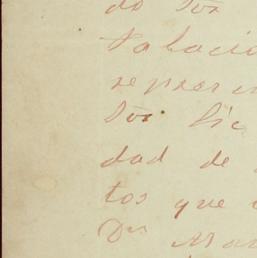 do Sor
Palacio
repres
Sor. Lic
dad de
tos que
Dn Man